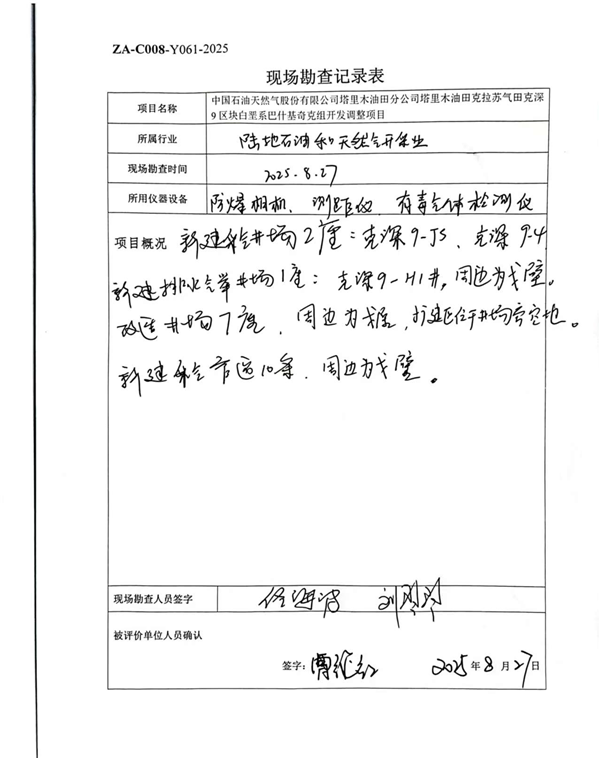 ZA-C008-Y061-2025
现场勘查记录表
项目名称
中国石油天然气股份有限公司塔里木油田分公司塔里木油田克拉苏气田克深
9区块白垩系巴什基奇克组开发调整项目
所属行业
陆地石油和天然气开采业
现场勘查时间
2025.8.27
所用仪器设备
防爆相机、测距仪、有毒气体检测仪
项目概况 新建采气井场2座:克深9-J5、克深9-4
新建排水气举井场1座:克深9-H1井,周边为戈壁。
改造井场7座,周边为戈壁,扩建位于井场旁空地。
新建采气管道10条,周边为戈壁。
现场勘查人员签字
被评价单位人员确认
签字:
2025年8月27日